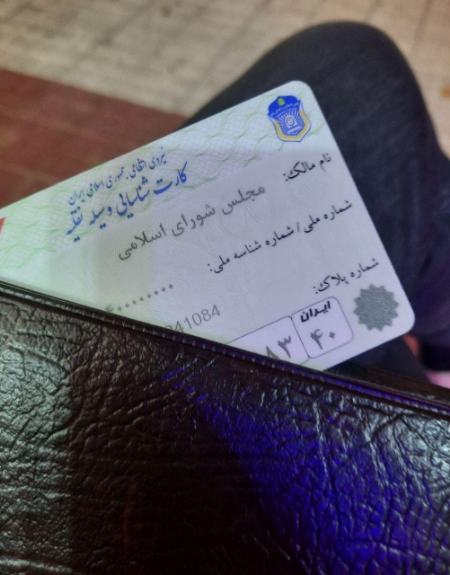 نیروی انتظامی جمهوری اسلامی ایران
کارت شناسایی وسیله نقلیه
نام مالک:
مجلس شورای اسلامی
شماره ملی / شماره شناسه ملی:
شماره پلاک:
41084
ایران
۸۳
۴۰